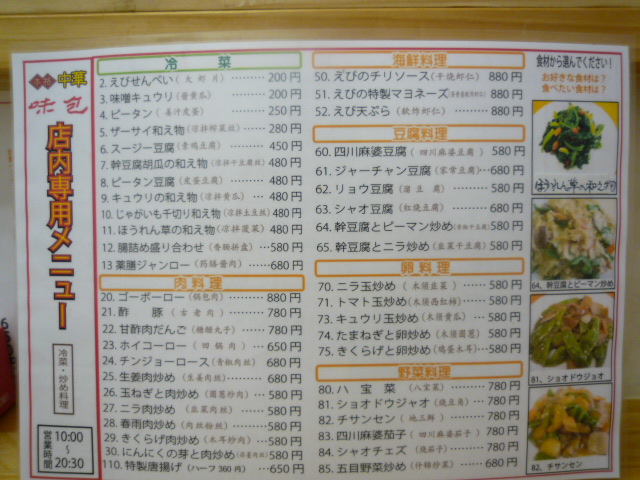 中華
味包
店内専用メニュー
冷菜・炒め料理
営業時間
10:00
~
20:30
冷 菜
2. えびせんべい (大蝦片) 200 円
3. 味噌キュウリ (醤黄瓜) 200 円
4. ピータン (姜汁皮蛋) 250 円
5. ザーサイ和え物 (涼拌榨菜丝) 280 円
6. スージー豆腐 (素鶏豆腐) 450 円
7. 幹豆腐胡瓜の和え物 480 円
8. ピータン豆腐 (皮蛋豆腐) 480 円
9. キュウリの和え物 (涼拌黄瓜) 480 円
10. じゃがいも千切り和え物 (涼拌土豆丝) 480 円
11. ほうれん草の和え物 (涼拌菠菜) 480 円
12. 腸詰め盛り合わせ (香腸拼盘) 580 円
13 薬膳ジャンロー (药膳醤肉) 680 円
肉料理
20. ゴーボーロー (锅包肉) 880 円
21. 酢 豚 (古老肉) 780 円
22. 甘酢肉だんご (糖醋丸子) 780 円
23. ホイコーロー (回鍋肉) 650 円
24. チンジョーロース (青椒肉丝) 680 円
25. 生姜肉炒め (生姜肉丝) 680 円
26. 玉ねぎと肉炒め (圓葱炒肉) 580 円
27. ニラ肉炒め (韮菜肉丝) 580 円
28. 春雨肉炒め (肉丝粉丝) 580 円
29. きくらげ肉炒め (木耳炒肉) 580 円
30. にんにくの芽と肉炒め 580 円
110. 特製唐揚げ (ハーフ 360 円) 650 円
海鮮料理
50. えびのチリソース (干焼蝦仁) 880 円
51. えびの特製マヨネーズ 880 円
52. えび天ぷら (軟炸蝦仁) 880 円
豆腐料理
60. 四川麻婆豆腐 (四川麻婆豆腐) 580 円
61. ジャーチャン豆腐 (家常豆腐) 680 円
62. リョウ豆腐 (溜豆腐) 580 円
63. シャオ豆腐 (紅焼豆腐) 680 円
64. 幹豆腐とピーマン炒め 580 円
65. 幹豆腐とニラ炒め (韮菜干豆腐) 580 円
卵料理
70. ニラ玉炒め (木须韮菜) 580 円
71. トマト玉炒め (木须西紅柿) 580 円
73. キュウリ玉炒め (木须黄瓜) 580 円
74. たまねぎと卵炒め (木须圓葱) 580 円
75. きくらげと卵炒め (鶏蛋木耳) 580 円
野菜料理
80. 八 宝 菜 (八宝菜) 780 円
81. ショオドウジャオ (焼豆角) 780 円
82. チサンセン (地三鮮) 780 円
83. 四川麻婆茄子 (四川麻婆茄子) 780 円
84. シャオチェズ (焼茄子) 580 円
85. 五目野菜炒め (什锦炒菜) 580 円
食材から選んでください!
お好きな食材は?
食べたい食材は?
ほうれん草の和え物
64、幹豆腐とピーマン炒め
81、ショオドウジョオ
82. チサンセン